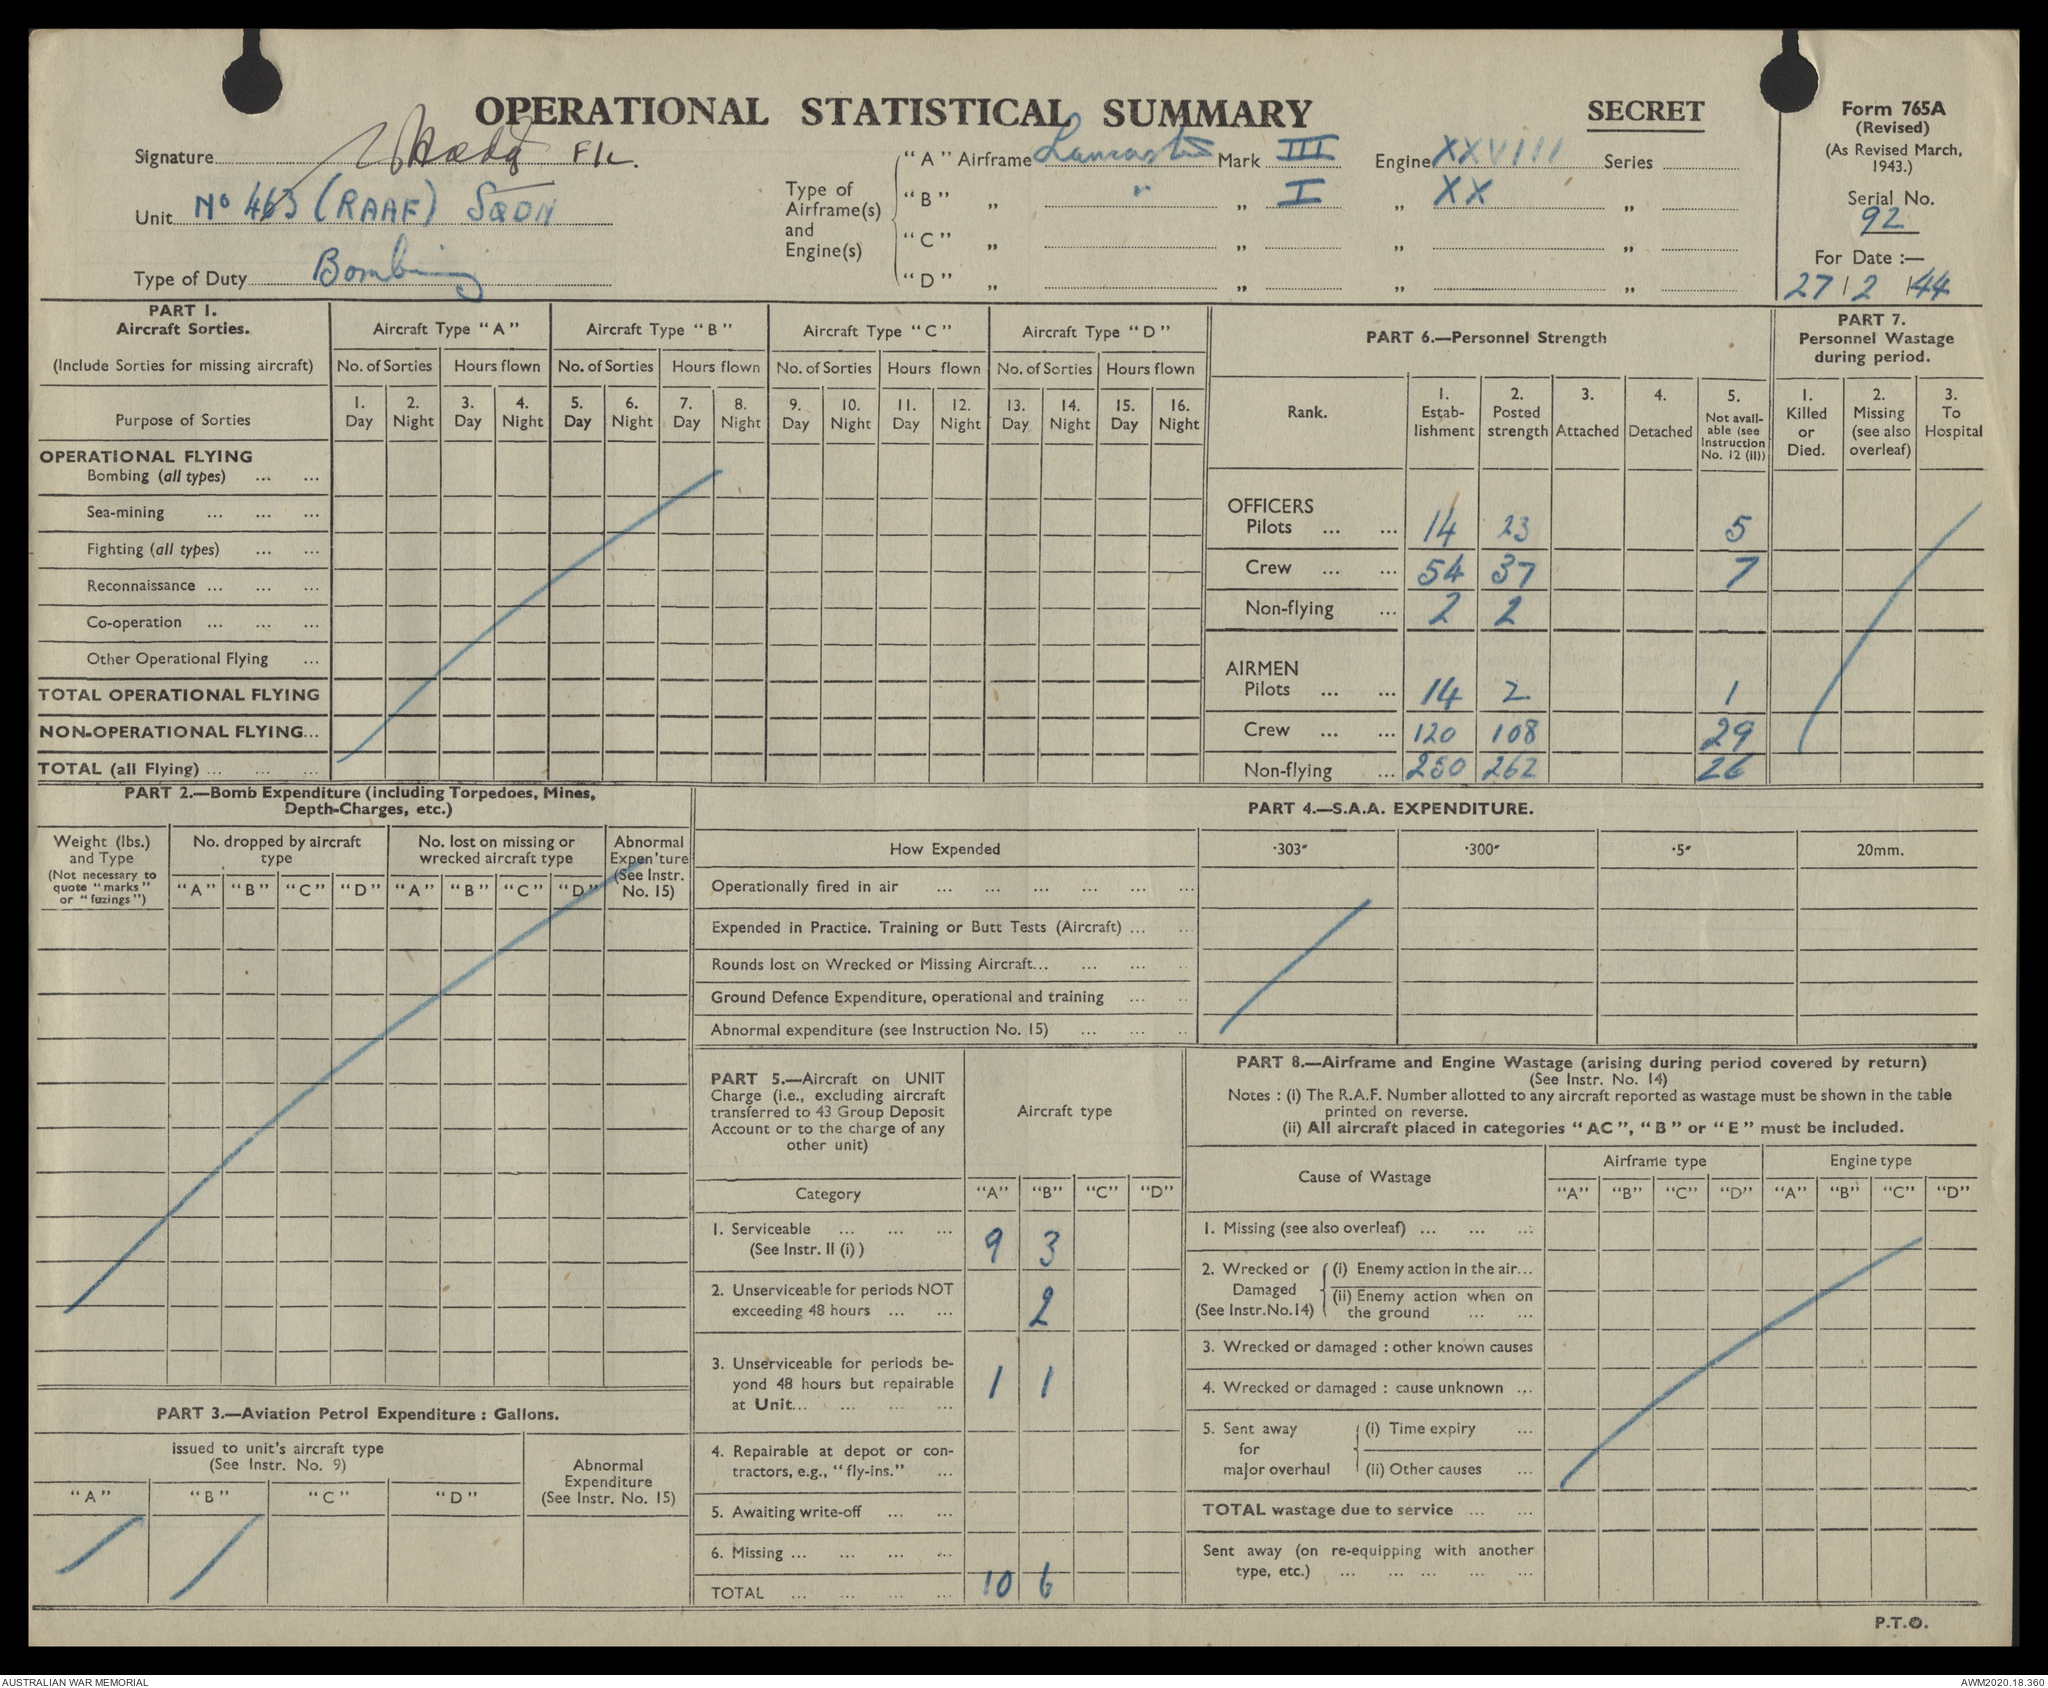 OPERATIONAL STATISTICAL SUMMARY
SECRET
Form 765A
(Revised)
(As Revised March, 1943.)
Serial No.
92
For Date :—
27 / 2 / 44
Signature F/L.
Unit No 463 (RAAF) SQDN
Type of Duty Bombing
Type of Airframe(s) and Engine(s)
"A" Airframe Lancaster Mark III Engine XXVIII Series
"B" „ " „ I „ XX „
"C" „ „ „ „
"D" „ „ „ „
PART 1.
Aircraft Sorties.
(Include Sorties for missing aircraft)
Purpose of Sorties
Aircraft Type "A" Aircraft Type "B" Aircraft Type "C" Aircraft Type "D"
No. of Sorties Hours flown No. of Sorties Hours flown No. of Sorties Hours flown No. of Sorties Hours flown
1. Day 2. Night 3. Day 4. Night 5. Day 6. Night 7. Day 8. Night 9. Day 10. Night 11. Day 12. Night 13. Day 14. Night 15. Day 16. Night
OPERATIONAL FLYING
Bombing (all types) ... ...
Sea-mining ... ... ...
Fighting (all types) ... ...
Reconnaissance ... ... ...
Co-operation ... ... ...
Other Operational Flying ...
TOTAL OPERATIONAL FLYING
NON-OPERATIONAL FLYING...
TOTAL (all Flying) ... ... ...
PART 6.—Personnel Strength
Rank.
1. Estab-lishment
2. Posted strength
3. Attached
4. Detached
5. Not avail-able (see Instruction No. 12 (ii))
OFFICERS
Pilots ... ... 14 23 5
Crew ... ... 54 37 7
Non-flying ... 2 2
AIRMEN
Pilots ... ... 14 2 1
Crew ... ... 120 108 29
Non-flying ... 250 262 26
PART 7.
Personnel Wastage during period.
1. Killed or Died.
2. Missing (see also overleaf)
3. To Hospital
PART 2.—Bomb Expenditure (including Torpedoes, Mines,
Depth-Charges, etc.)
Weight (lbs.) and Type
(Not necessary to quote "marks" or "fuzings")
No. dropped by aircraft type
No. lost on missing or wrecked aircraft type
Abnormal Expen'ture (See Instr. No. 15)
"A" "B" "C" "D" "A" "B" "C" "D"
PART 3.—Aviation Petrol Expenditure : Gallons.
Issued to unit's aircraft type
(See Instr. No. 9)
Abnormal Expenditure (See Instr. No. 15)
"A" "B" "C" "D"
PART 4.—S.A.A. EXPENDITURE.
How Expended ·303" ·300" ·5" 20mm.
Operationally fired in air ... ... ... ... ... ...
Expended in Practice. Training or Butt Tests (Aircraft) ... ...
Rounds lost on Wrecked or Missing Aircraft... ... ... ..
Ground Defence Expenditure, operational and training ... ..
Abnormal expenditure (see Instruction No. 15) ... ... ..
PART 5.—Aircraft on UNIT
Charge (i.e., excluding aircraft
transferred to 43 Group Deposit
Account or to the charge of any
other unit)
Aircraft type
Category "A" "B" "C" "D"
1. Serviceable ... ... ...
(See Instr. II (i) ) 9 3
2. Unserviceable for periods NOT
exceeding 48 hours ... ... 2
3. Unserviceable for periods be-
yond 48 hours but repairable 1 1
at Unit... ... ... ...
4. Repairable at depot or con-
tractors, e.g., "fly-ins." ...
5. Awaiting write-off ... ...
6. Missing ... ... ... ...
TOTAL ... ... ... ... 10 6
PART 8.—Airframe and Engine Wastage (arising during period covered by return)
(See Instr. No. 14)
Notes : (i) The R.A.F. Number allotted to any aircraft reported as wastage must be shown in the table
printed on reverse.
(ii) All aircraft placed in categories "AC", "B" or "E" must be included.
Cause of Wastage Airframe type Engine type
"A" "B" "C" "D" "A" "B" "C" "D"
1. Missing (see also overleaf) ... ... ...
2. Wrecked or Damaged (See Instr.No.14)
(i) Enemy action in the air...
(ii) Enemy action when on
the ground ... ...
3. Wrecked or damaged : other known causes
4. Wrecked or damaged : cause unknown ...
5. Sent away for major overhaul
(i) Time expiry ...
(ii) Other causes ...
TOTAL wastage due to service ... ...
Sent away (on re-equipping with another
type, etc.) ... ... ... ... ...
P.T.O.
AUSTRALIAN WAR MEMORIAL
AWM2020.18.360